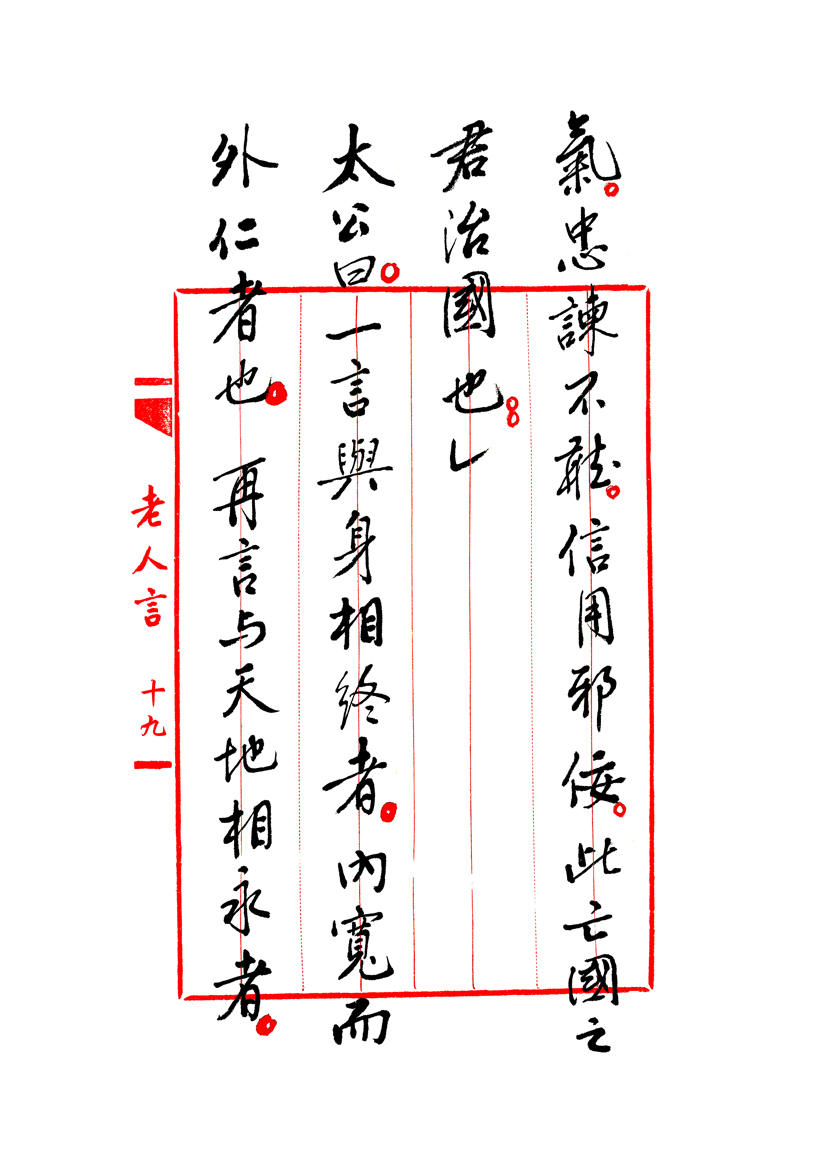 氣。忠諫不聽。信用邪佞。此亡國之
君治國也。。」
太公曰。一言與身相終者。內寬而
外仁者也。再言与天地相永者。
老人言 十九